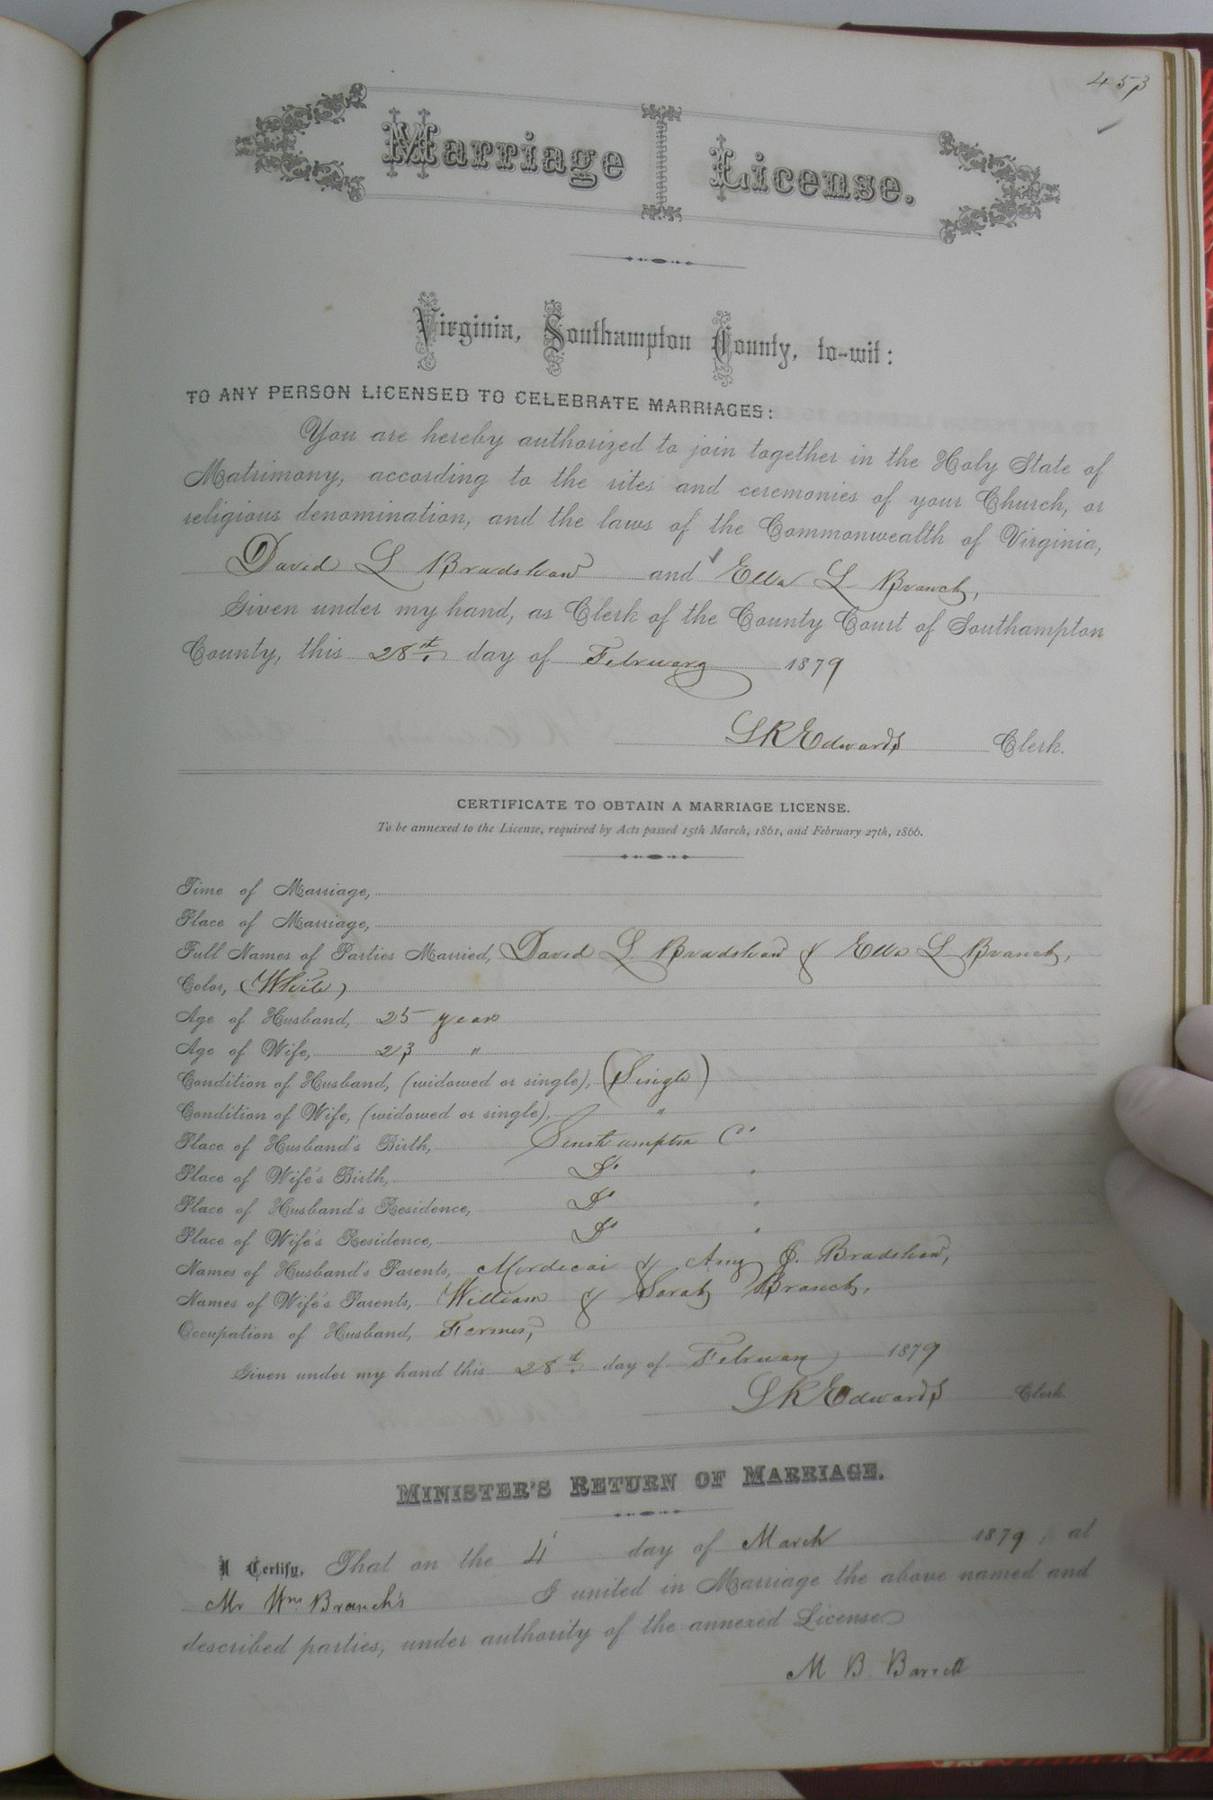 453
Marriage License.
Virginia, Southampton County, to-wit:
TO ANY PERSON LICENSED TO CELEBRATE MARRIAGES:
You are hereby authorized to join together in the Holy State of
Matrimony, according to the rites and ceremonies of your Church, or
religious denomination, and the laws of the Commonwealth of Virginia,
David L Bradshaw and Ella L Branch,
Given under my hand, as Clerk of the County Court of Southampton
County, this 28th. day of February 1879
L R Edwards Clerk.
CERTIFICATE TO OBTAIN A MARRIAGE LICENSE.
To be annexed to the License, required by Acts passed 15th March, 1861, and February 27th, 1866.
Time of Marriage,
Place of Marriage,
Full Names of Parties Married, David L Bradshaw & Ella L Branch,
Color, (White)
Age of Husband, 25 years
Age of Wife, 23 "
Condition of Husband, (widowed or single), (Single)
Condition of Wife, (widowed or single), "
Place of Husband's Birth, Southampton Co.
Place of Wife's Birth, Do. "
Place of Husband's Residence, Do "
Place of Wife's Residence, Do "
Names of Husband's Parents, Mordecai & Amy J. Bradshaw,
Names of Wife's Parents, William & Sarah Branch,
Occupation of Husband, Farmer,
Given under my hand this 28th. day of February 1879
L R Edwards Clerk
MINISTER'S RETURN OF MARRIAGE.
I Certify, That on the 4 day of March 1879, at
Mr Wm. Branch's I united in Marriage the above named and
described parties, under authority of the annexed License
M B Barrett